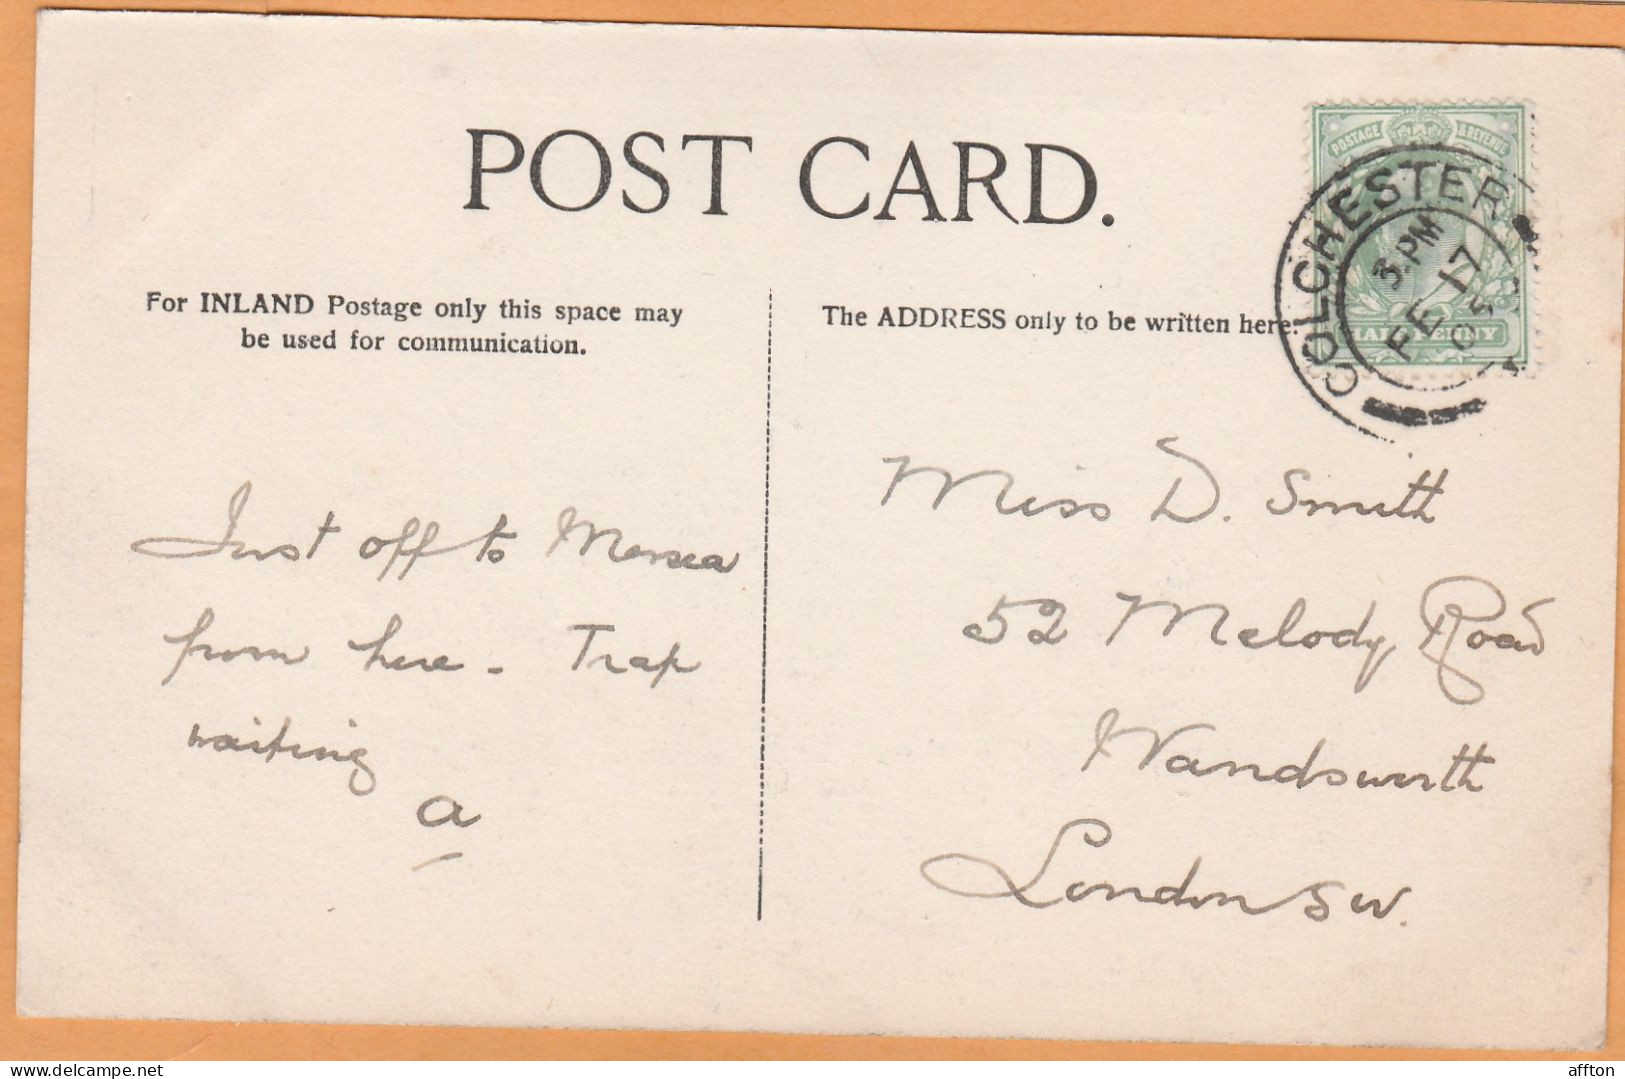 POST CARD.
POSTAGE & REVENUE
COLCHESTER
3. PM
FE 17
05
HALFPENNY
For INLAND Postage only this space may
be used for communication.
The ADDRESS only to be written here.
Just off to Mersea
from here - Trap
waiting
a
Miss D. Smith
52 Melody Road
Wandsworth
London SW.
delcampe.net
affton